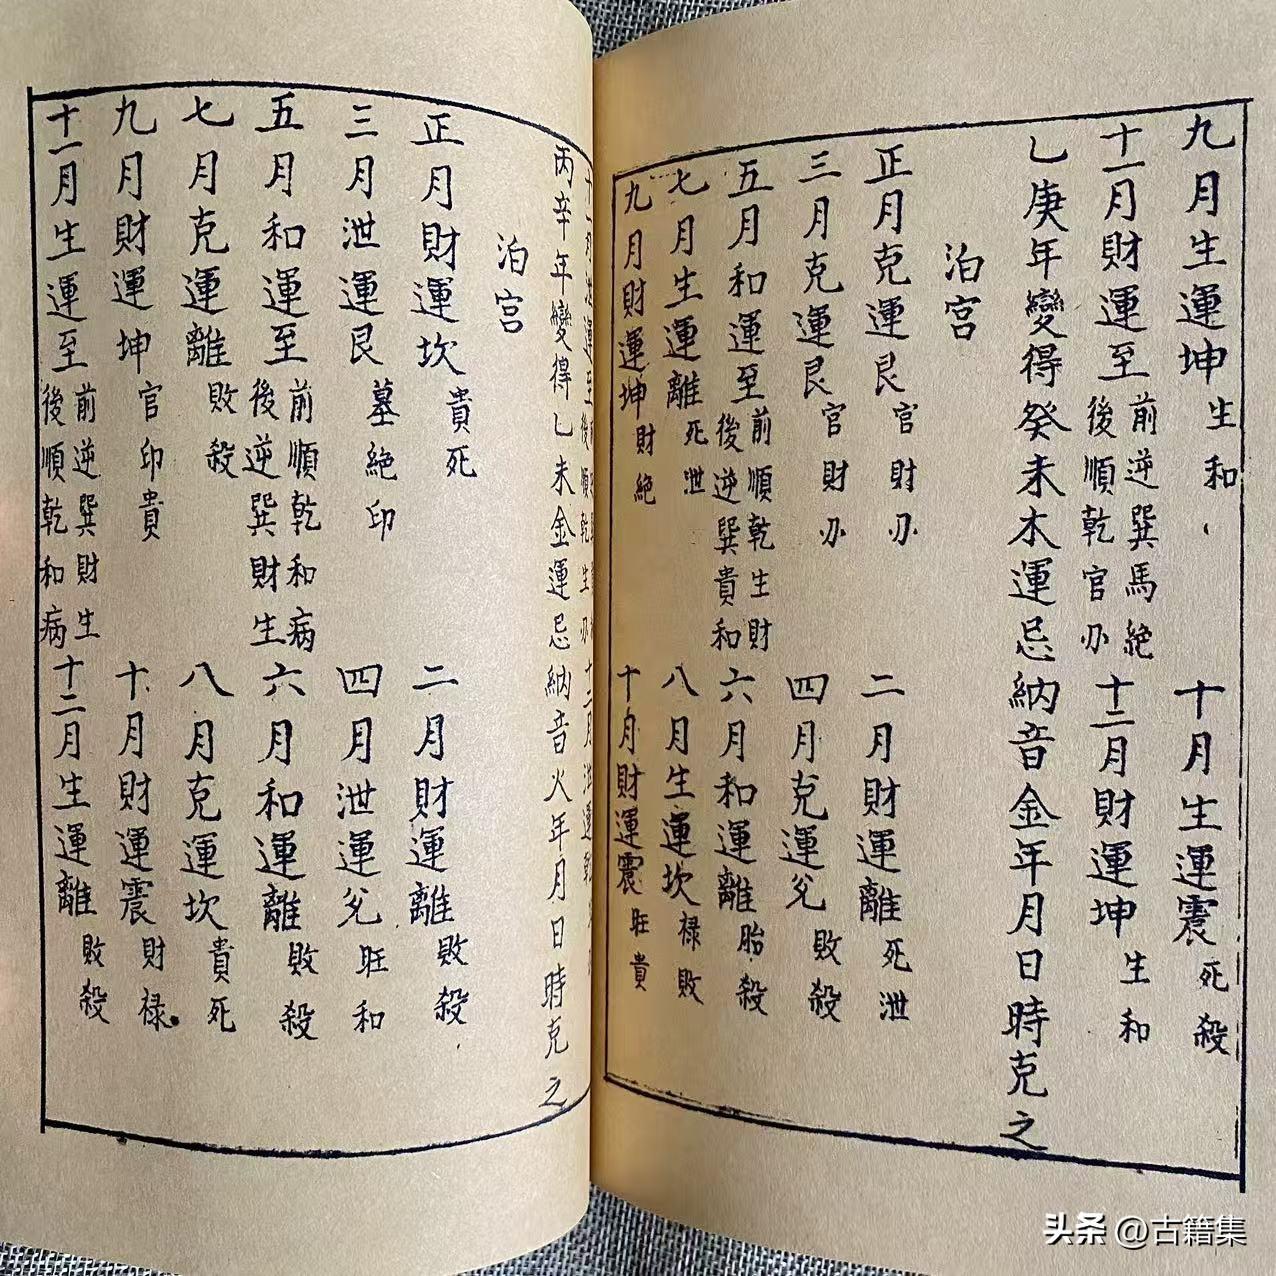 九月生運坤生和
十月生運震死殺
十一月財運至前逆巽馬絶後順乾官刃
十二月財運坤生和
乙庚年變得癸未木運忌納音金年月日時克之
泊宮
正月克運艮官財刃
二月財運離死泄
三月克運艮官財刃
四月克運兊敗殺
五月和運至前順乾生財後逆巽貴和
六月和運離胎殺
七月生運離死泄
八月生運坎禄敗
九月財運坤財絶
十月財運震旺貴
丙辛年變得乙未金運忌納音火年月日時克之
泊宮
正月財運坎貴死
二月財運離敗殺
三月泄運艮墓絶印
四月泄運兊旺和
五月和運至前順乾和病後逆巽財生
六月和運離敗殺
七月克運離敗殺
八月克運坎貴死
九月財運坤官印貴
十月財運震財禄
十一月生運至前逆巽財生後順乾和病
十二月生運離敗殺
头条 @古籍集